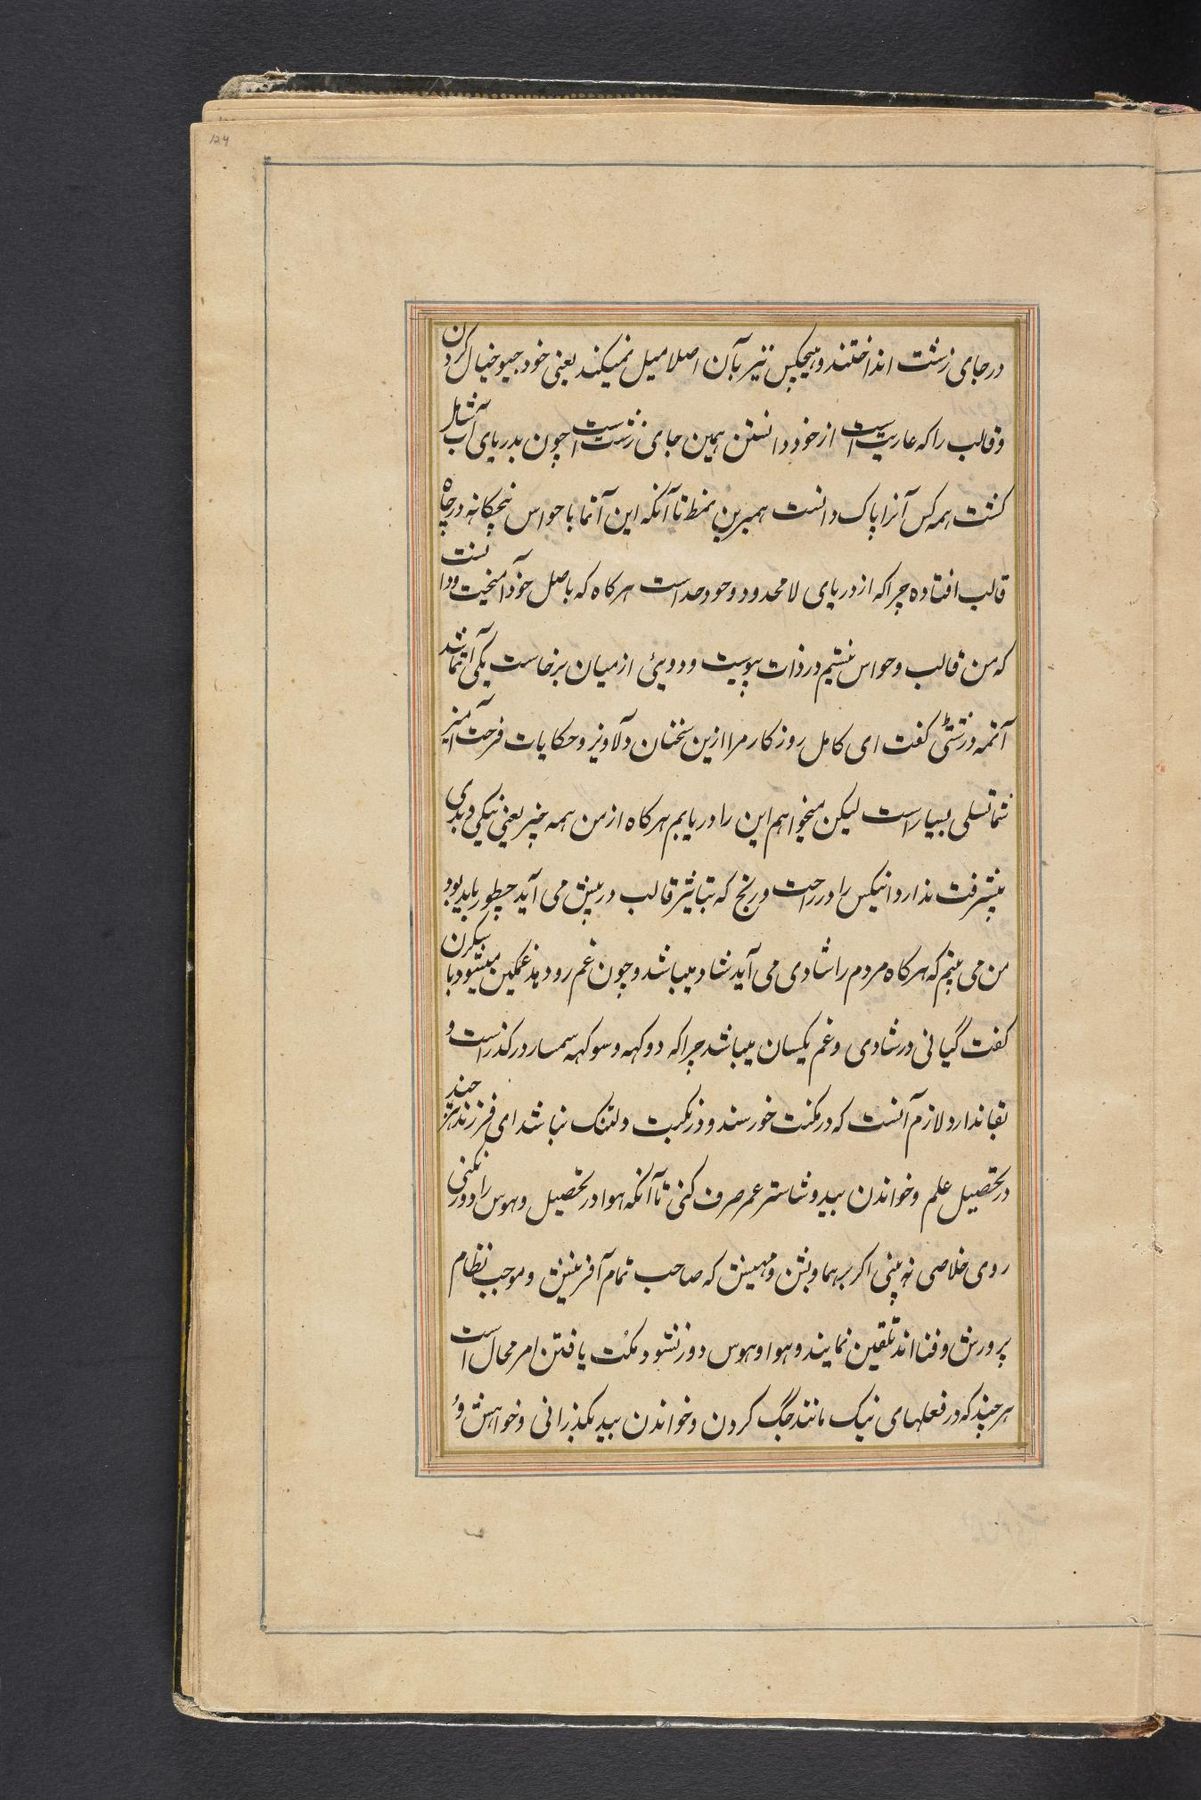 درجای زشت انداختند و هیچکس نیز بآن اصلا میل نمیکند یعنی خود جیو خیال کردن
و قالب را که عاریت است از خود دانستن همین جای زشت است چون بدریای آب شامل
کشت همه کس آنرا پاک دانست همبرین نمط تا آنکه این آتما با حواس پنچکانه در چاه
قالب افتاده چرا که از دریای لامحدود وجود جداست هرکاه که باصل خود آمیخت و دانست
که من قالب و حواس نیستم در ذات پیوست و دویئ از میان برخاست یکی آتما شد
آتمه درشتی کفت ای کامل روزکار مرا ازین سخنان دلاویز و حکایات فرحت آمیز
شما تسلی بسیار است لیکن میخواهم این را دریابم هرکاه از من همه چیز یعنی نیکی و بدی
پیشرفت ندارد انیکس را در راحت و رنج که بتاثیر قالب در پیش می آید چطور باید بود
من می بینم که هرکاه مردم را شادی می آید شاد میباشد و چون غم رو دهد غمکین میشود
کفت کیانی در شادی و غم یکسان میباشد چرا که دوکهه و سوکهه سمسار درکذر است و
بقا ندارد لازم آنست که در مکنت خورسند و در نکبت دلتنک نباشد ای فرزند هرچند
در تحصیل علم و خواندن بید و شاستر عمر صرف کنی تا آنکه هوا در تحصیل و هوس را دور نکنی
روی خلاصی نه بینی اکر برهما و بشن و مهیش که صاحب تمام آفرینش و موجب نظام
پرورش و فنا اند تلقین نمایند و هوا و هوس دور نشود مکت یافتن امر محال است
هرچند که در فعلهای نیک مانند جگ کردن و خواندن بید بکذرانی و خواهش و